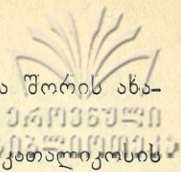 ა შორის ახა-
ეროვნული
ბიბლიოთეკა
კათალიკოსის